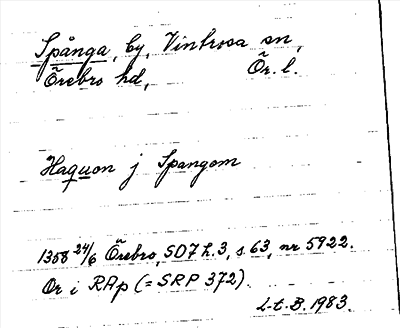 Spånga, by, Vintrosa sn,
Örebro hd, Ör. l.
Haquon j Spangom
1358 24/6 Örebro, SD7 h.3, s.63, nr 5922.
Or i RAp (= SRP 372).
L-t. B. 1983.